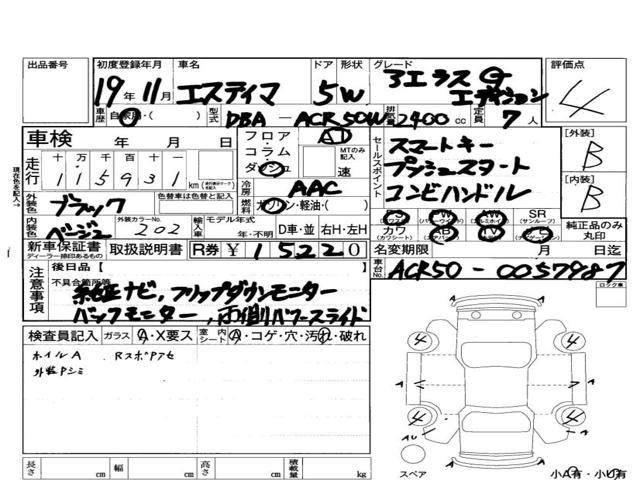 出品番号 初度登録年月 車名 ドア 形状 グレード 評価点
19年 11月 エスティマ 5W アエラス G エディション 4
車歴 自家用・( ) 型式 DBA - ACR50W 排気量 2400 cc 定員 7 人
車検 年 月 日
フロア・コラム・ダッシュ AT MTのみ記入 速
セールスポイント
スマートキー
プッシュスタート
コンビハンドル
[外装] B
[内装] B
現在色を記入→
走行 十 万 千 百 十 一
1 1 5 9 3 1 km
冷房 AAC
外装色 ブラック 色替車は色替前色 燃料 ガソリン・軽油・( )
内装色 ベージュ 外装カラーNo. 202 輸入車 モデル年式 年・不明 D車・並 右H・左H
CS PS PW SR (サンルーフ)
カワ (カワシート) AB TV
純正品のみ丸印
新車保証書 ディーラー捺印あるもの 取扱説明書 R券 ¥ 15220
名変期限 月 日迄
車台No. ACR50-0057987
注意事項 後日品 [ ]
不具合箇所等
純正ナビ,フリップダウンモニター
バックモニター,両側パワースライド
ロック車
検査員記入 ガラス A・X要ス 室内シート A・コゲ・穴・汚れ・破れ
ホイルA Rスポアセ
外装Pシミ
4 4
1 1
4 4
AU
スペア
小A有・小U有
長さ cm 幅 cm 高さ cm 積載量 kg